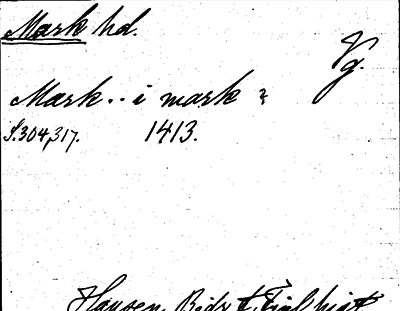 Mark hd.
Vg.
Mark .. i mark ?
S.304,317. 1413.
Hansen, Bidr t.